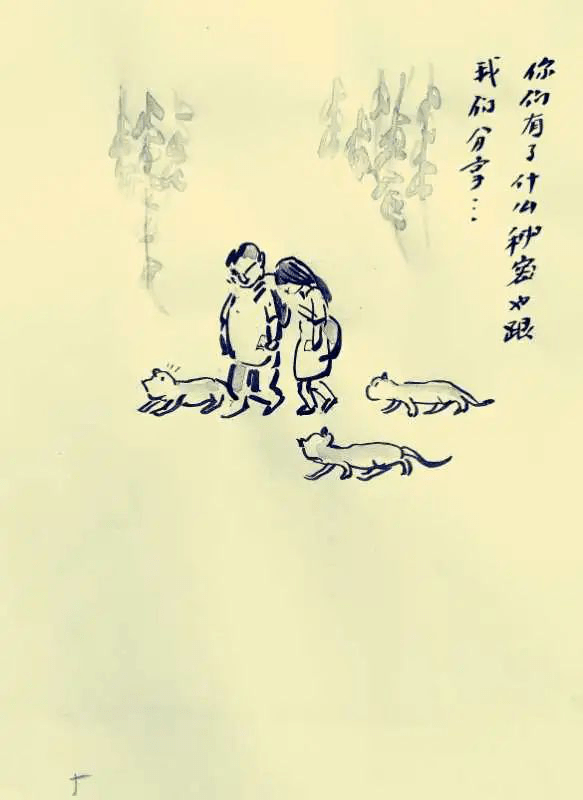 你们有了什么秘密也跟
我们分享…